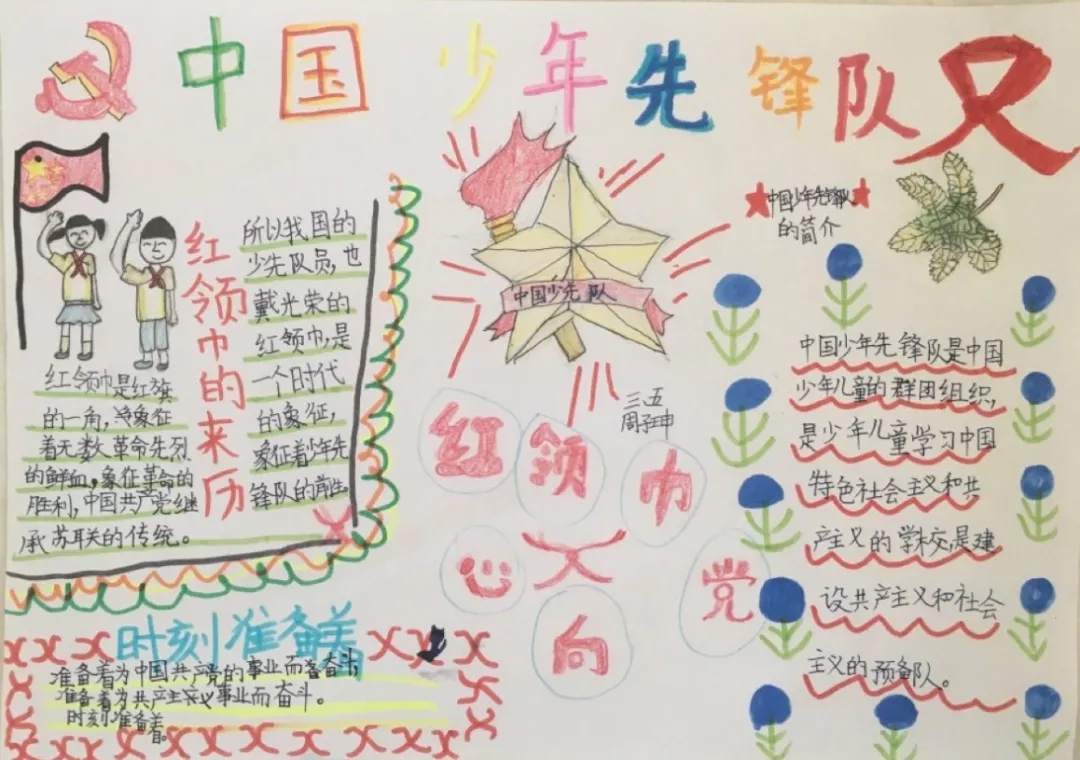 中国少年先锋队
红领巾的来历
红领巾是红旗
的一角,象征
着无数革命先烈
的鲜血,象征革命的
胜利,中国共产党继
承苏联的传统。
所以我国的
少先队员,也
戴光荣的
红领巾,是
一个时代
的象征,
象征着少年先
锋队的前
时刻准备着
准备着为中国共产党的事业而奋斗
准备着为共产主义事业而奋斗。
时刻准备着。
中国少先队
三、五
周子坤
红领巾
心向党
中国少年先锋队
的简介
中国少年先锋队是中国
少年儿童的群团组织,
是少年儿童学习中国
特色社会主义和共
产主义的学校,是建
设共产主义和社会
主义的预备队。